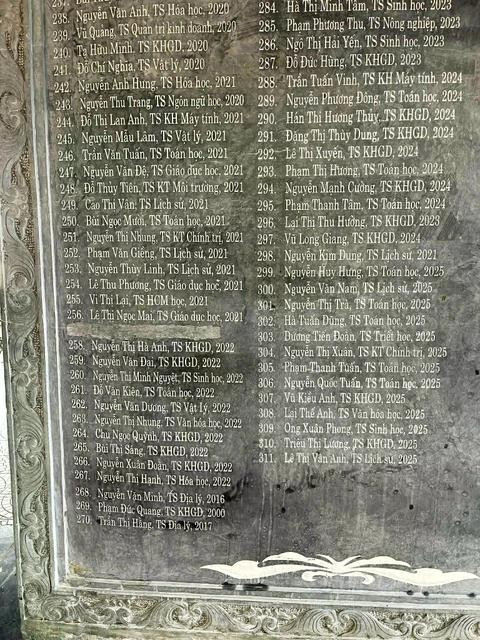 238. Nguyễn Văn Anh, TS Hóa học, 2020
239. Vũ Quang, TS Quản trị kinh doanh, 2020
240. Tạ Hữu Minh, TS KHGD, 2020
241. Đỗ Chí Nghĩa, TS Vật lý, 2020
242. Nguyễn Anh Hưng, TS Hóa học, 2021
243. Nguyễn Thu Trang, TS Ngôn ngữ học, 2020
244. Đỗ Thị Lan Anh, TS KH Máy tính, 2021
245. Nguyễn Mẫu Lâm, TS Vật lý, 2021
246. Trần Văn Tuấn, TS Toán học, 2021
247. Nguyễn Văn Đệ, TS Giáo dục học, 2021
248. Đỗ Thủy Tiên, TS KT Môi trường, 2021
249. Cao Thị Vân, TS Lịch sử, 2021
250. Bùi Ngọc Mười, TS Toán học, 2021
251. Nguyễn Thị Nhung, TS KT Chính trị, 2021
252. Phạm Văn Giềng, TS Lịch sử, 2021
253. Nguyễn Thùy Linh, TS Lịch sử, 2021
254. Lê Thu Phương, TS Giáo dục học, 2021
255. Vi Thị Lại, TS HCM học, 2021
256. Lê Thị Ngọc Mai, TS Giáo dục học, 2021
258. Nguyễn Thị Hà Anh, TS KHGD, 2022
259. Nguyễn Văn Đại, TS KHGD, 2022
260. Nguyễn Thị Minh Nguyệt, TS Sinh học, 2022
261. Đỗ Văn Kiên, TS Toán học, 2022
262. Nguyễn Văn Dương, TS Vật Lý, 2022
263. Nguyễn Thị Nhung, TS Văn hóa học, 2022
264. Chu Ngọc Quỳnh, TS KHGD, 2022
265. Bùi Thị Sáng, TS KHGD, 2022
266. Nguyễn Xuân Đoàn, TS KHGD, 2022
267. Nguyễn Thị Hạnh, TS Hóa học, 2022
268. Nguyễn Văn Minh, TS Địa lý, 2016
269. Phạm Đức Quang, TS KHGD, 2000
270. Trần Thị Hằng, TS Địa lý, 2017
284. Hà Thị Minh Tâm, TS Sinh học, 2023
285. Phạm Phương Thu, TS Nông nghiệp, 2023
286. Ngô Thị Hải Yến, TS Sinh học, 2023
287. Đỗ Đức Hùng, TS KHGD, 2023
288. Trần Tuấn Vinh, TS KH Máy tính, 2024
289. Nguyễn Phương Đông, TS Toán học, 2024
290. Hán Thị Hương Thủy, TS KHGD, 2024
291. Đặng Thị Thùy Dung, TS KHGD, 2024
292. Lê Thị Xuyến, TS KHGD, 2024
293. Phạm Thị Hương, TS Toán học, 2024
294. Nguyễn Mạnh Cường, TS KHGD, 2024
295. Phạm Thanh Tâm, TS Toán học, 2024
296. Lại Thị Thu Hường, TS KHGD, 2023
297. Vũ Long Giang, TS KHGD, 2024
298. Nguyễn Kim Dung, TS Lịch sử, 2021
299. Nguyễn Huy Hưng, TS Toán học, 2025
300. Nguyễn Văn Nam, TS Lịch sử, 2025
301. Nguyễn Thị Trà, TS Toán học, 2025
302. Hà Tuấn Dũng, TS Toán học, 2025
303. Dương Tiến Đoàn, TS Triết học, 2025
304. Nguyễn Thị Xuân, TS KT Chính trị, 2025
305. Phạm Thanh Tuấn, TS Toán học, 2025
306. Nguyễn Quốc Tuấn, TS Toán học, 2025
307. Vũ Kiều Anh, TS KHGD, 2025
308. Lại Thế Anh, TS Văn hóa học, 2025
309. Ong Xuân Phong, TS Sinh học, 2025
310. Triệu Thị Lương, TS KHGD, 2025
311. Lê Thị Vân Anh, TS Lịch sử, 2025